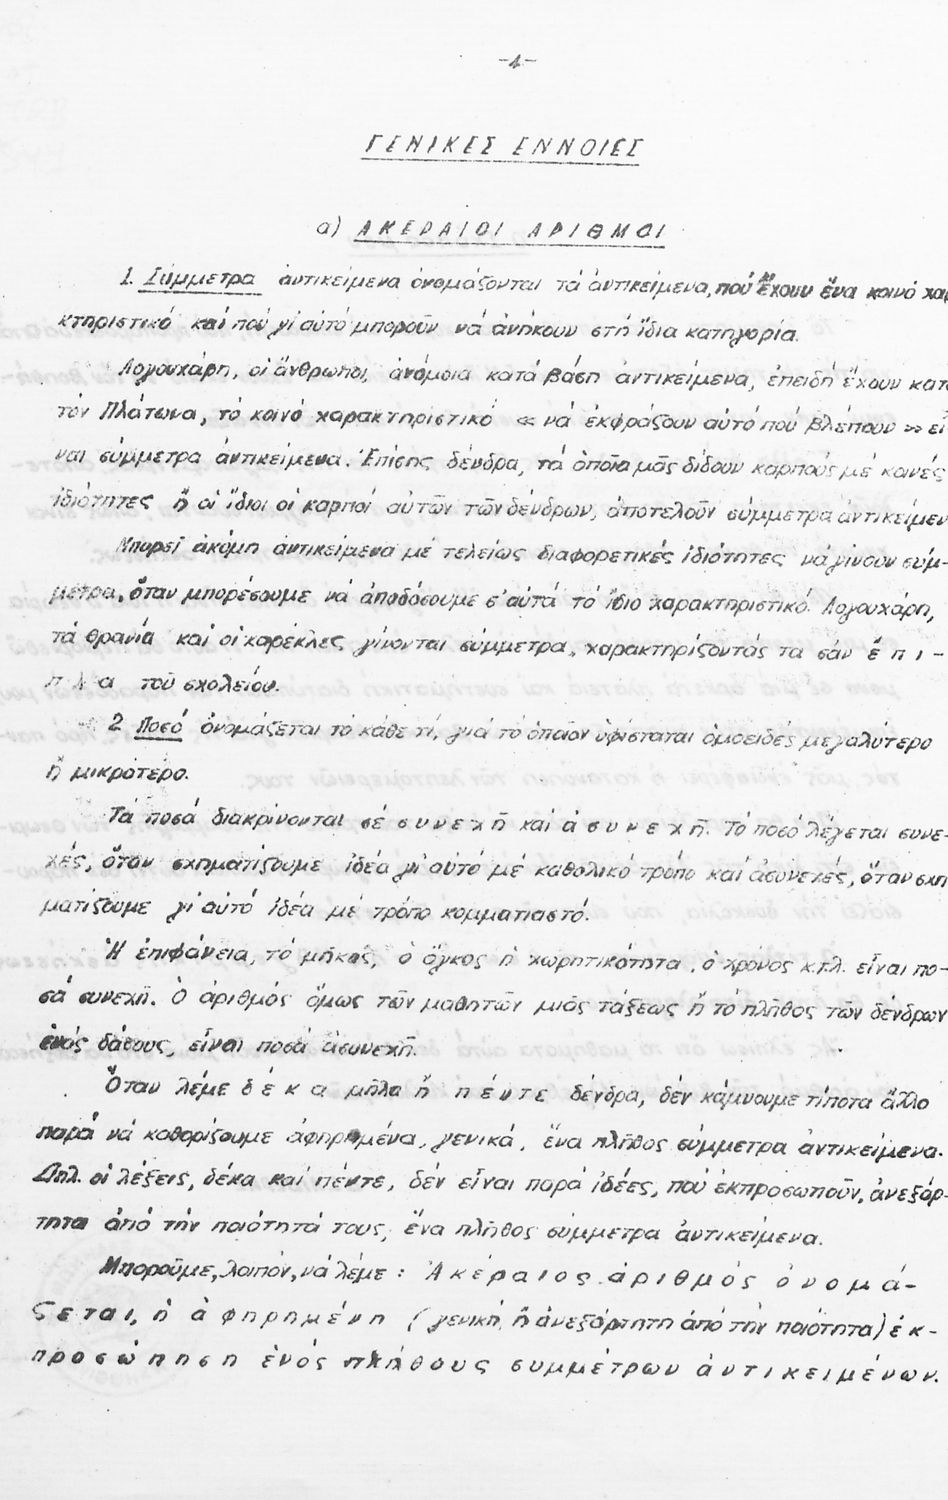 -4-
ΓΕΝΙΚΕΣ ΕΝΝΟΙΕΣ
α) ΑΚΕΡΑΙΟΙ ΑΡΙΘΜΟΙ
1. Σύμμετρα ἀντικείμενα ὀνομάζονται τά ἀντικείμενα, πού ἔχουν ἕνα κοινό χαρ
κτηριστικό καί πού γι' αὐτό μποροῦν νά ἀνήκουν στή ἴδια κατηγορία.
Λογουχάρη, οἱ ἄνθρωποι, ἀνόμοια κατά βάση ἀντικείμενα, ἐπειδή ἔχουν κατ
τόν Πλάτωνα, τό κοινό χαρακτηριστικό « νά ἐκφράζουν αὐτό πού βλέπουν » εἶ
ναι σύμμετρα ἀντικείμενα. Ἐπίσης δένδρα, τά ὁποῖα μᾶς δίδουν καρπούς μέ κοινές
ἰδιότητες ἤ οἱ ἴδιοι οἱ καρποί αὐτῶν τῶν δένδρων, ἀποτελοῦν σύμμετρα ἀντικείμεν
Μπορεῖ ἀκόμη ἀντικείμενα μέ τελείως διαφορετικές ἰδιότητες νά γίνουν σύμ-
μετρα, ὅταν μπορέσουμε νά ἀποδόσουμε σ' αὐτά τό ἴδιο χαρακτηριστικό. Λογουχάρη,
τά θρανία καί οἱ καρέκλες γίνονται σύμμετρα, χαρακτηρίζοντάς τα σάν ἔ π ι -
π λ α τοῦ σχολείου.
2 Ποσό ὀνομάζεται τό κάθε τί, γιά τό ὁποῖον ὑφίσταται ὁμοειδές μεγαλύτερο
ἤ μικρότερο.
Τά ποσά διακρίνονται σέ σ υ ν ε χ ῆ καί ἀ σ υ ν ε χ ῆ. Τό ποσό λέγεται συνε-
χές, ὅταν σχηματίζουμε ἰδέα γι' αὐτό μέ καθολικό τρόπο καί ἀσυνεχές, ὅταν σχη
ματίζουμε γι' αὐτό ἰδέα μέ τρόπο κομματιαστό.
Ἡ ἐπιφάνεια, τό μῆκος, ὁ ὄγκος ἡ χωρητικότητα, ὁ χρόνος κ.τ.λ. εἶναι πο-
σά συνεχῆ. Ὁ ἀριθμός ὅμως τῶν μαθητῶν μιᾶς τάξεως ἤ τό πλῆθος τῶν δένδρων
ἑνός δάσους, εἶναι ποσά ἀσυνεχῆ.
Ὅταν λέμε δ έ κ α μῆλα ἤ π έ ν τ ε δένδρα, δέν κάμνουμε τίποτα ἄλλο
παρά νά καθορίζουμε ἀφηρημένα, γενικά, ἕνα πλῆθος σύμμετρα ἀντικείμενα.
Δηλ. οἱ λέξεις, δέκα καί πέντε, δέν εἶναι παρά ἰδέες, πού ἐκπροσωποῦν, ἀνεξάρ-
τητα ἀπό τήν ποιότητά τους, ἕνα πλῆθος σύμμετρα ἀντικείμενα.
Μποροῦμε, λοιπόν, νά λέμε : Ἀ κ έ ρ α ι ο ς ἀ ρ ι θ μ ό ς ὀ ν ο μ ά -
ζ ε τ α ι, ἡ ἀ φ η ρ η μ έ ν η ( γενική, ἤ ἀνεξάρτητη ἀπό τήν ποιότητα) ἐ κ -
π ρ ο σ ώ π η σ η ἑ ν ό ς π λ ή θ ο υ ς σ υ μ μ έ τ ρ ω ν ἀ ν τ ι κ ε ι μ έ ν ω ν.